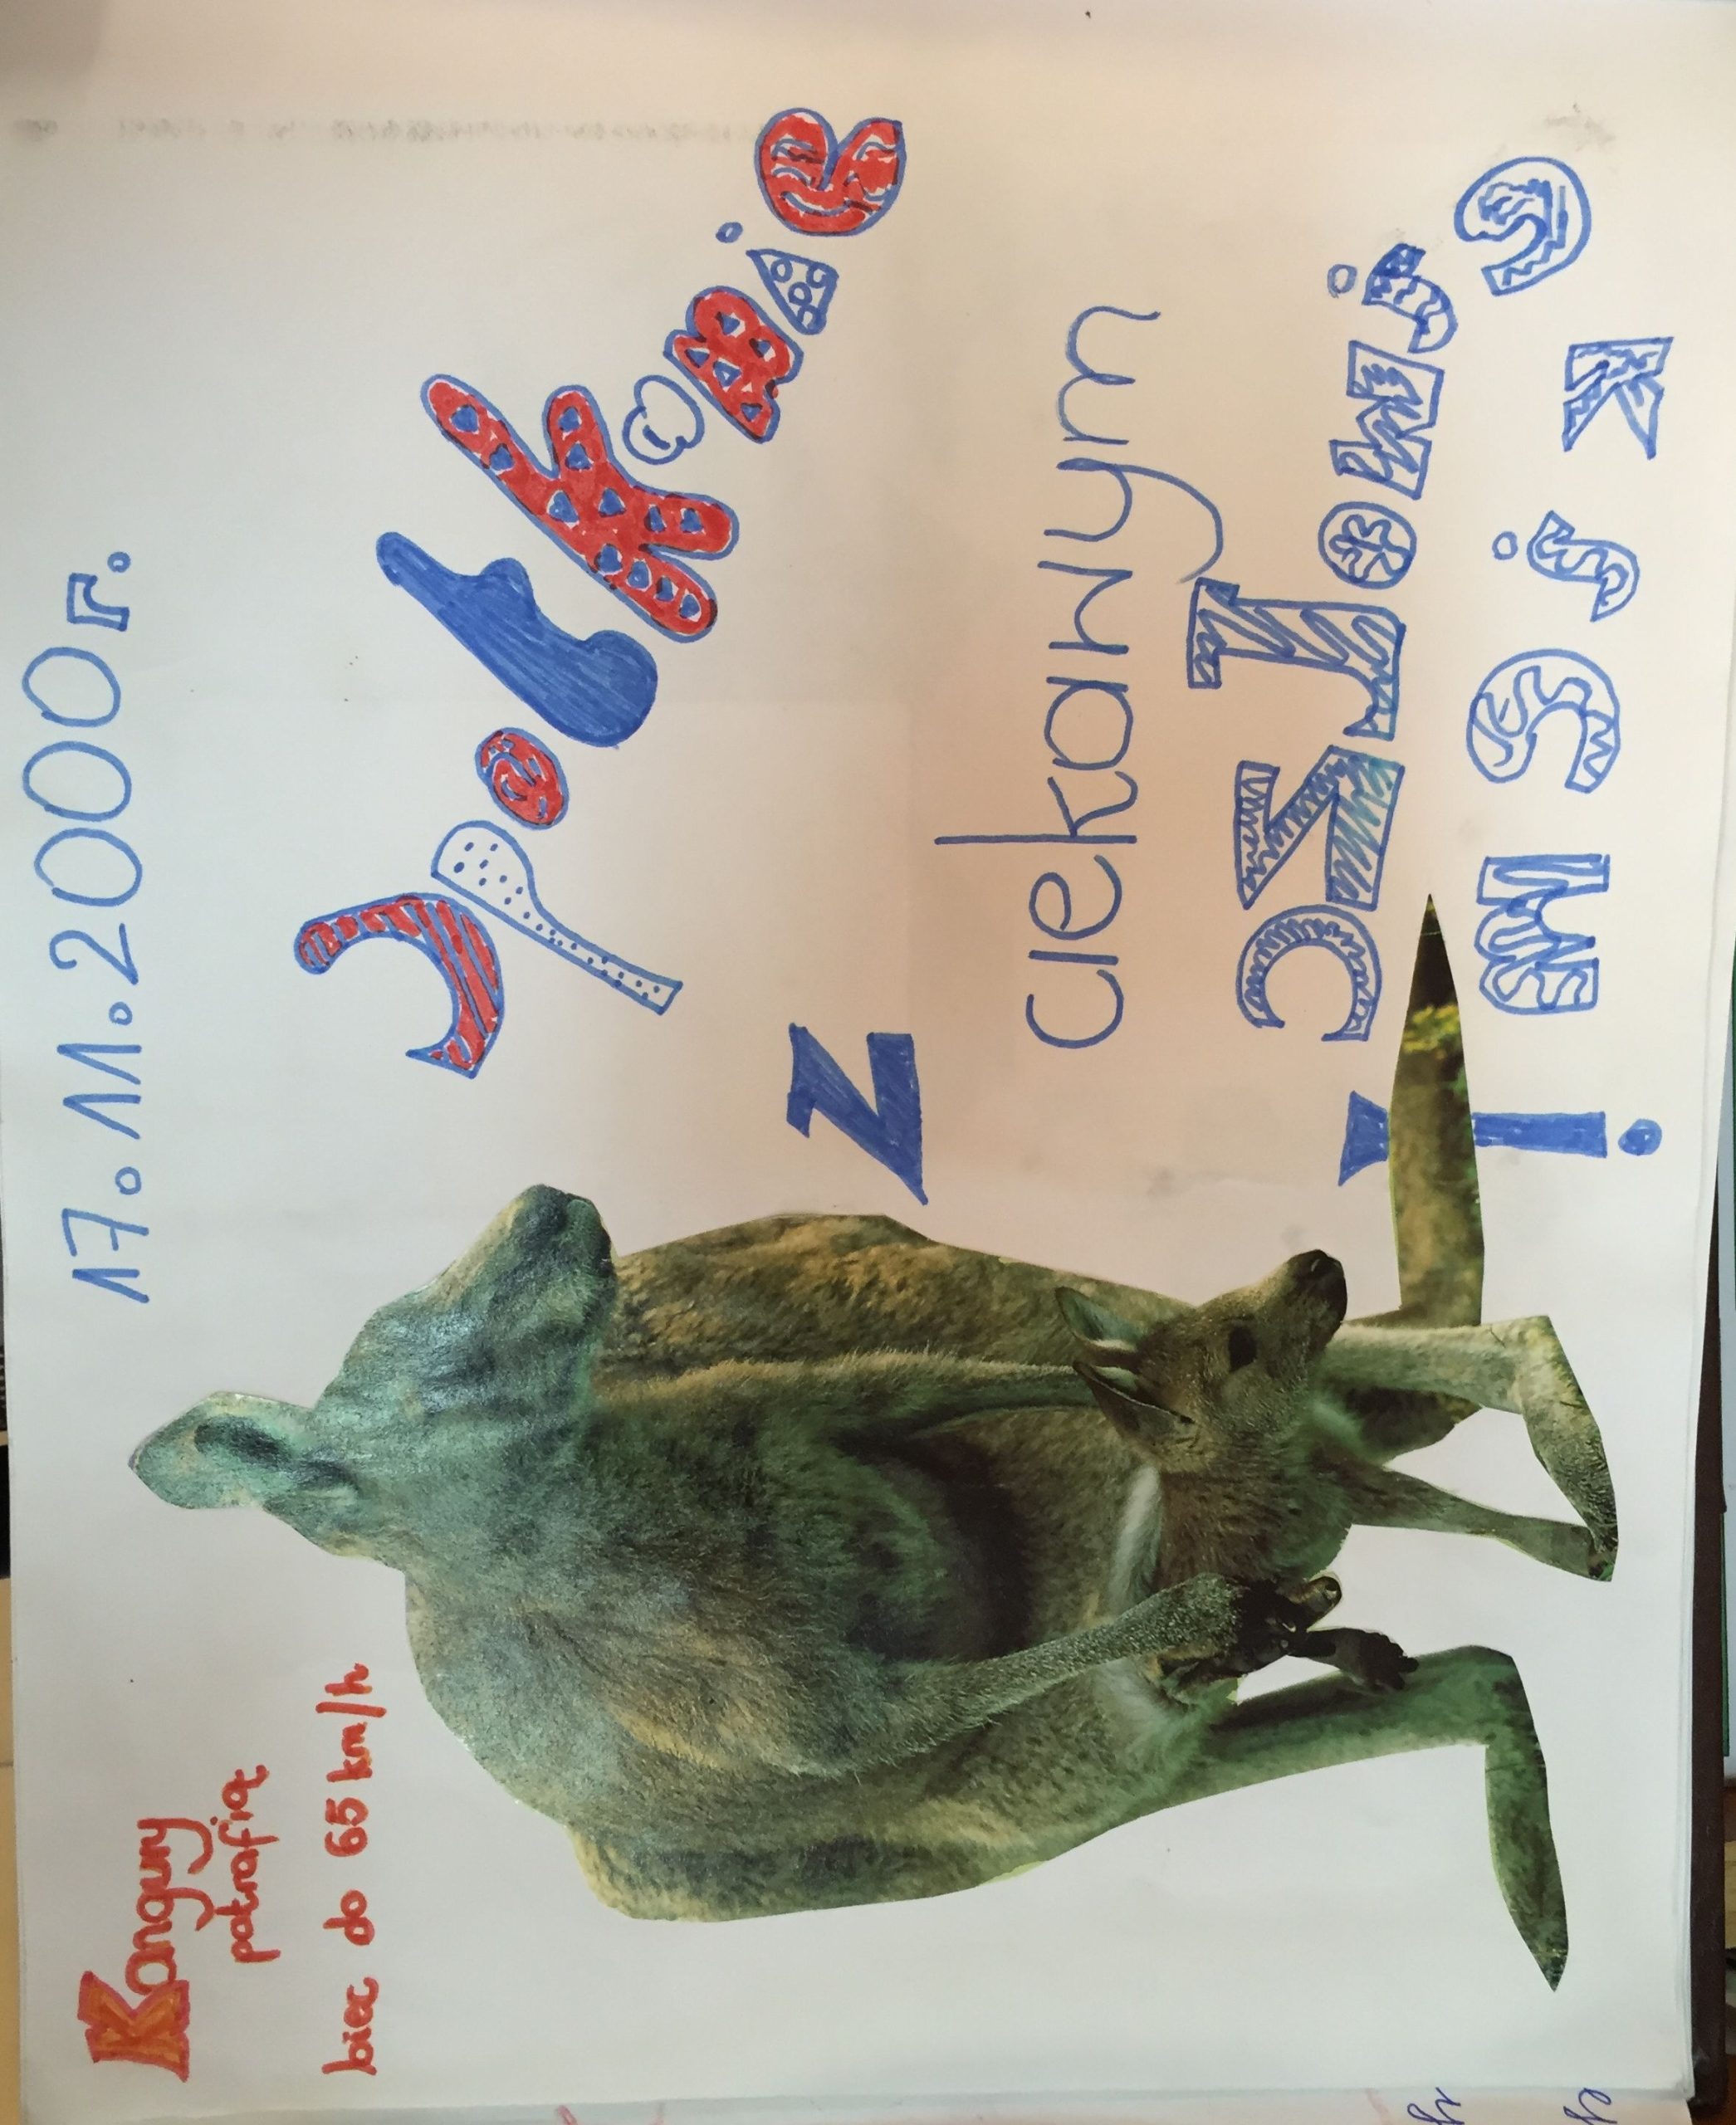 17.11.2000 r.
Kangury
potrafią
biec do 65 km/h
Spotkanie
z
ciekawym
CZŁOWie
KieM!